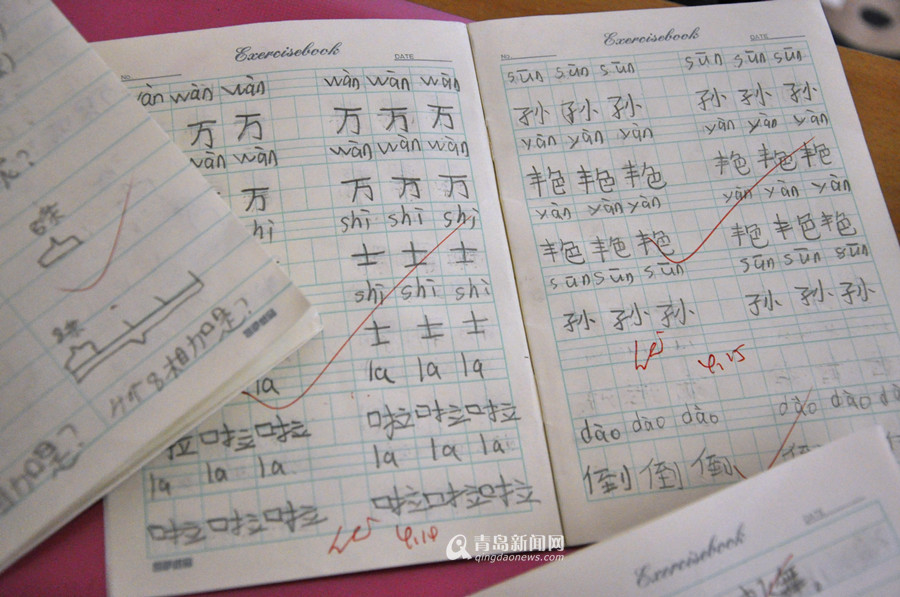 Exercisebook
No. DATE
wàn wàn wàn wàn wàn
万 万 万 万 万
wàn wàn wàn wàn wàn
万 万 万 万
shī shī shì
士 士 士
shī shī shī
士 士 士
la la la la
啦 啦 啦 啦 啦
la la la la la la
啦 啦 啦 啦 啦 啦
4.19
Exercisebook
No. DATE
sūn sūn sūn sūn sūn sūn
孙 孙 孙 孙 孙 孙
yàn yàn yàn yàn yàn yàn
艳 艳 艳 艳 艳 艳
yàn yàn yàn yàn yàn yàn
艳 艳 艳 艳 艳 艳
sūn sūn sūn sūn sūn sūn
孙 孙 孙 孙 孙 孙
4.25
dào dào dào dào dào dào
倒 倒 倒
6米
8米
4个8相加是?
加是?
DATE
Exercisebook
青岛新闻网
qingdaonews.com